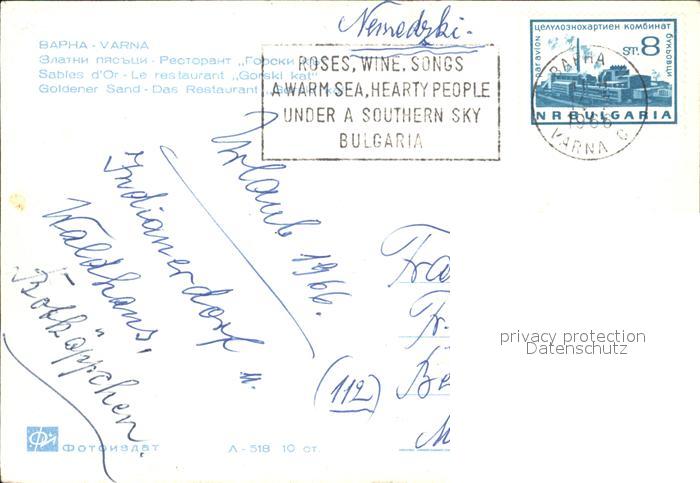 Nemedzki.
ВАРНА - VARNA
Златни пясъци - Ресторант „Горски
Sables d'Or - Le restaurant „Gorski kat"
Goldener Sand - Das Restaurant
ROSES, WINE, SONGS
A WARM SEA, HEARTY PEOPLE
UNDER A SOUTHERN SKY
BULGARIA
целулознохартиен комбинат
paravion
буковци
ST. 8
NRBULGARIA
ВАРНА
1966
VARNA C
Urlaub 1966.
Indianerdorf u.
Waldhaus,
Rotkäppchen.
Fra
Fr.
(112) Be
M
privacy protection
Datenschutz
Фотоиздат
Л-518 10 ст.